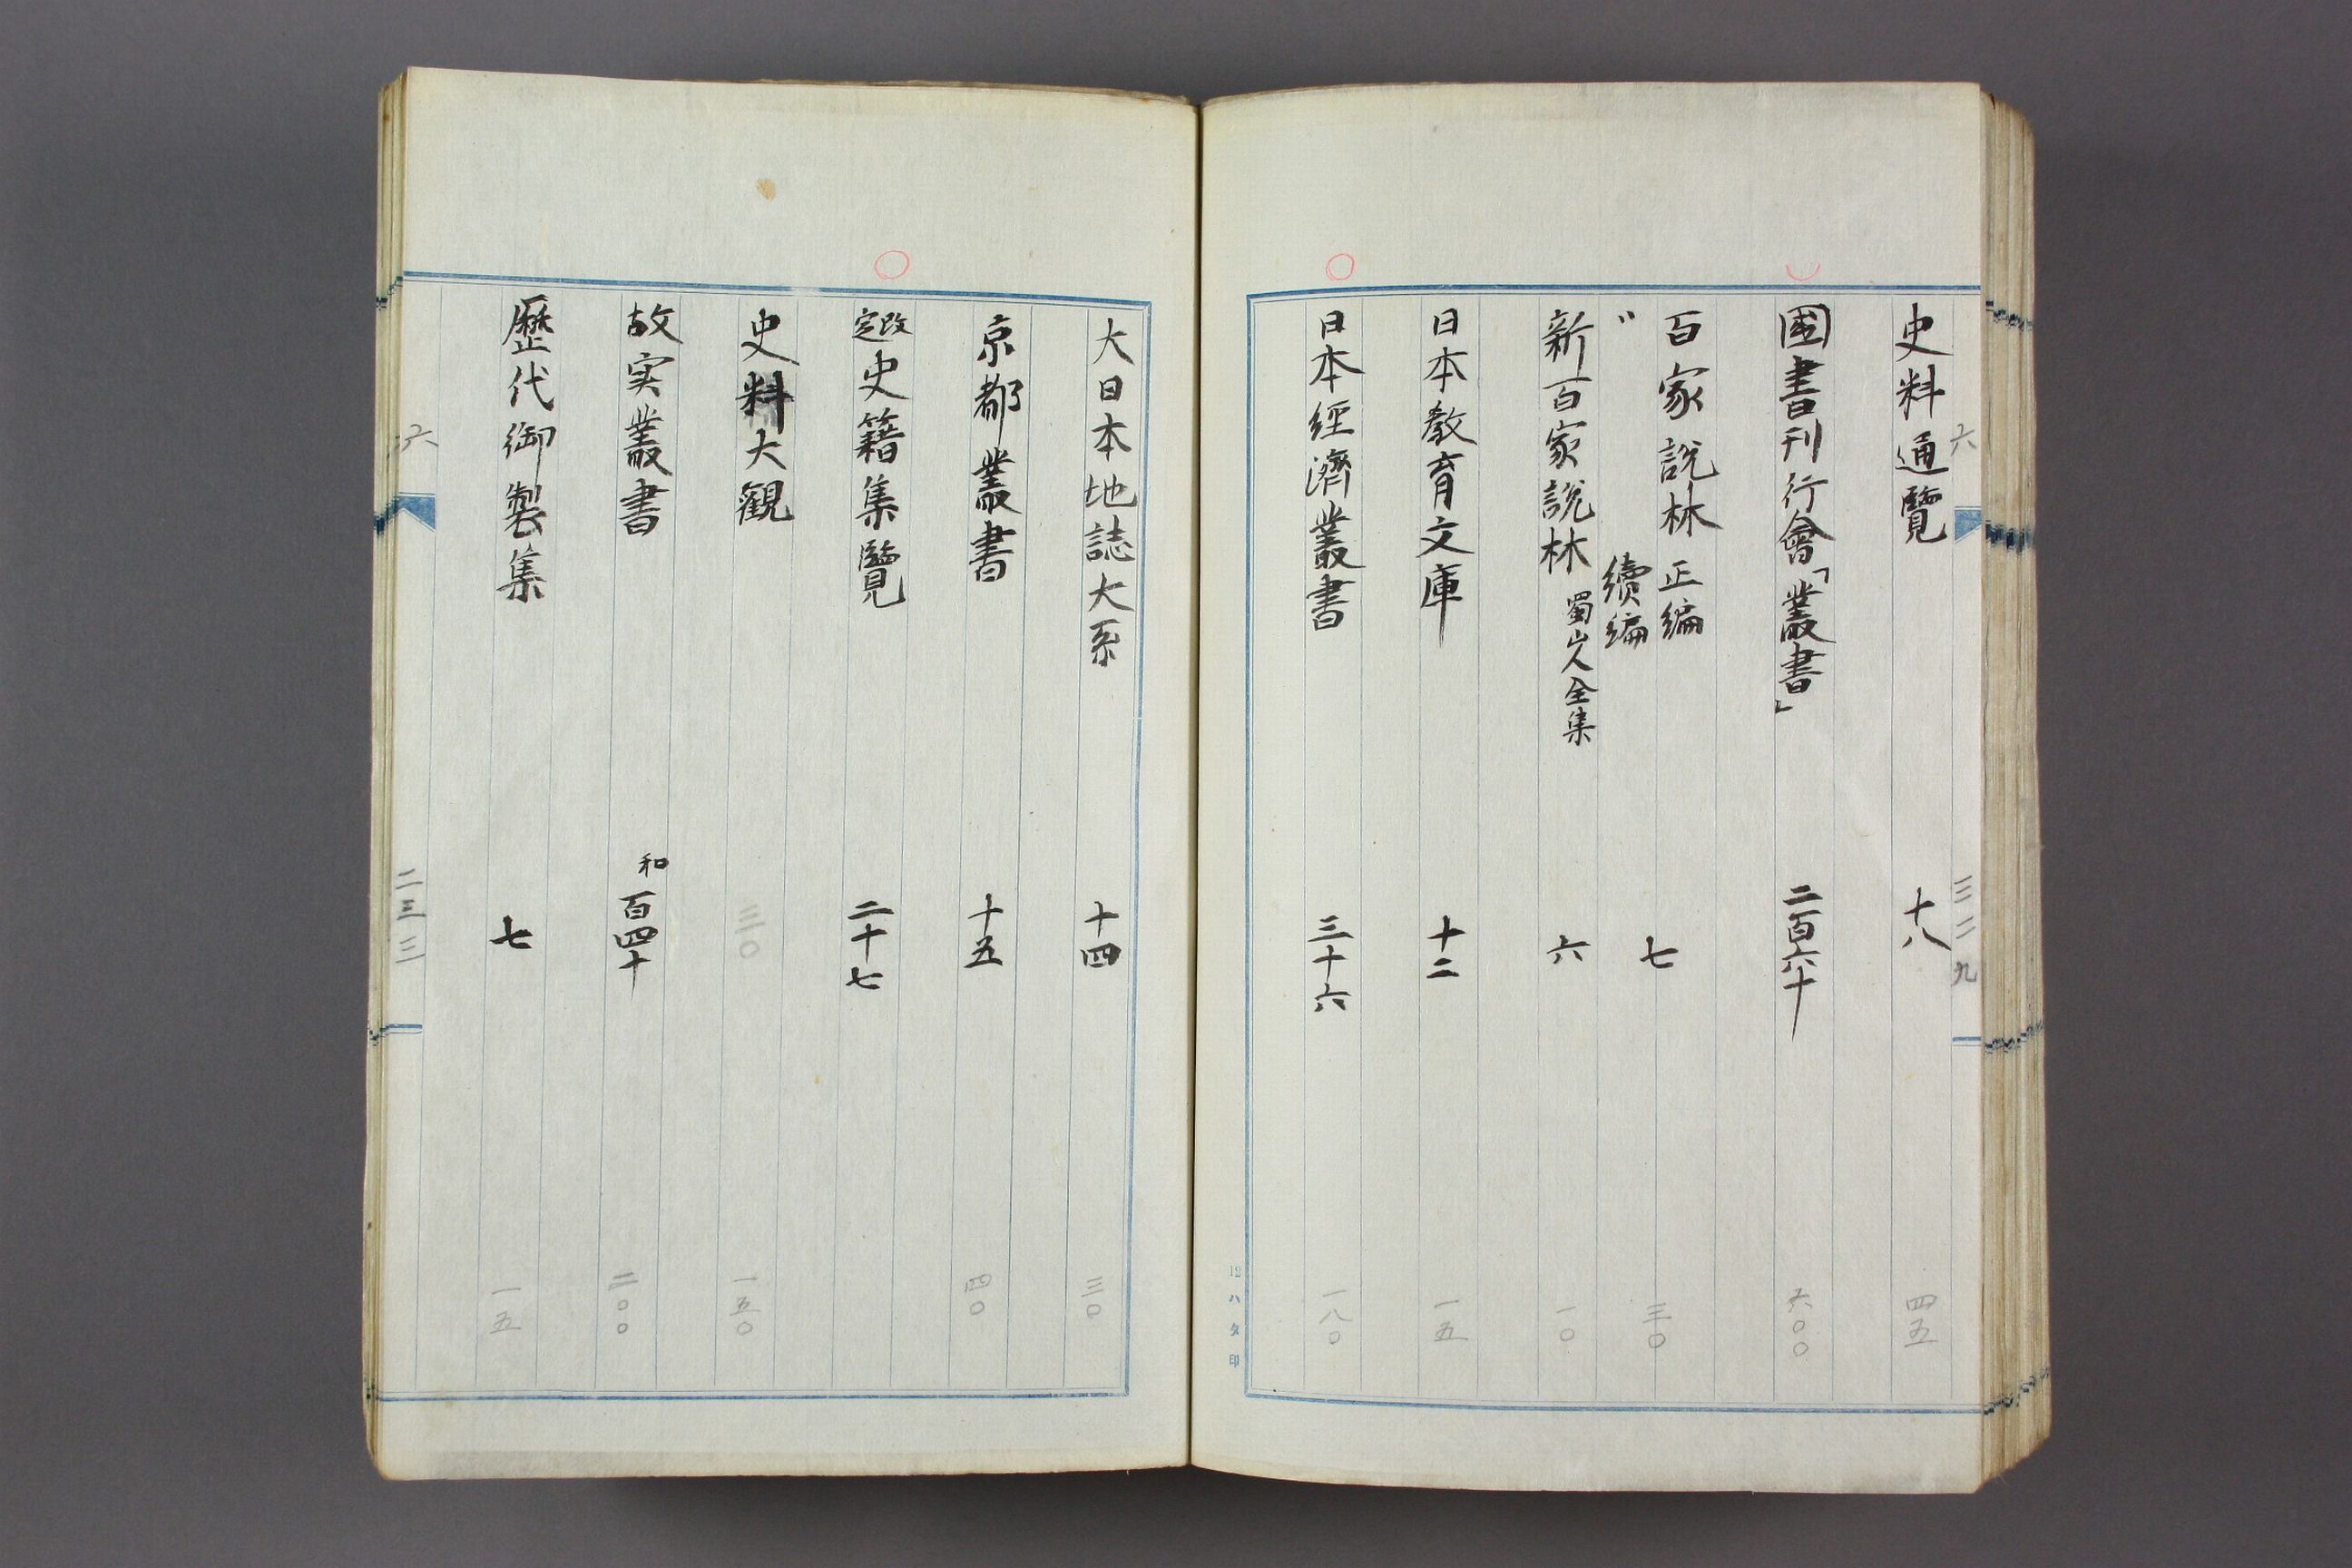 六
史料通覽 十八 四五
國書刊行會「叢書」 二百六十 六〇〇
百家説林 正編 七 三〇
〃 續編
新百家説林 蜀山人全集 六 一〇
日本教育文庫 十二 一五
日本經濟叢書 三十六 一八〇
12ハタ印
大日本地誌大系 十四 三〇
京都叢書 十五 四〇
改定史籍集覽 二十七
史料大觀 三〇 一五〇
故実叢書 和百四十 二〇〇
歷代御製集 七 一五
六
二三三